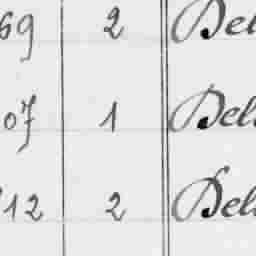 69 2 Del
07 1 Del
12 2 Del